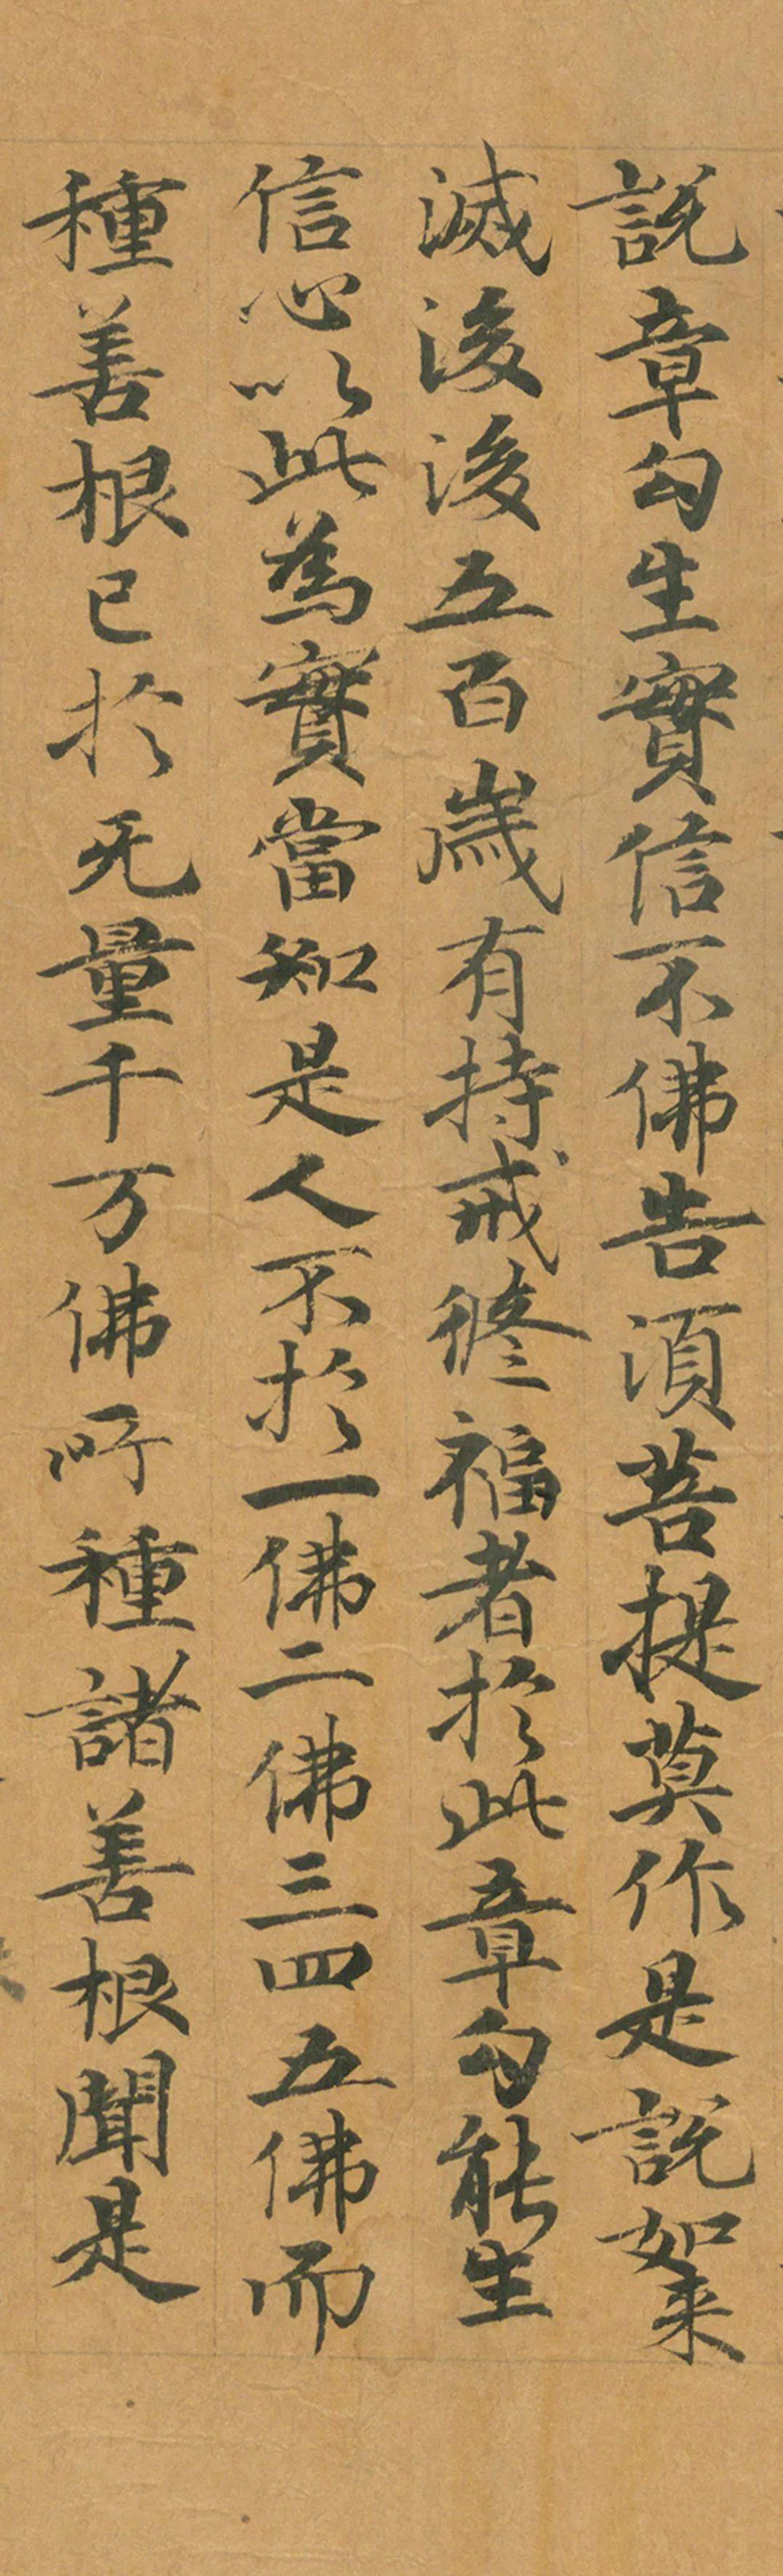 説章勾生實信不佛告湏菩提莫作是説如来
滅後後五百歳有持戒修福者於此章勾能生
信心以此為實當知是人不於一佛二佛三四五佛而
種善根已於无量千万佛所種諸善根聞是